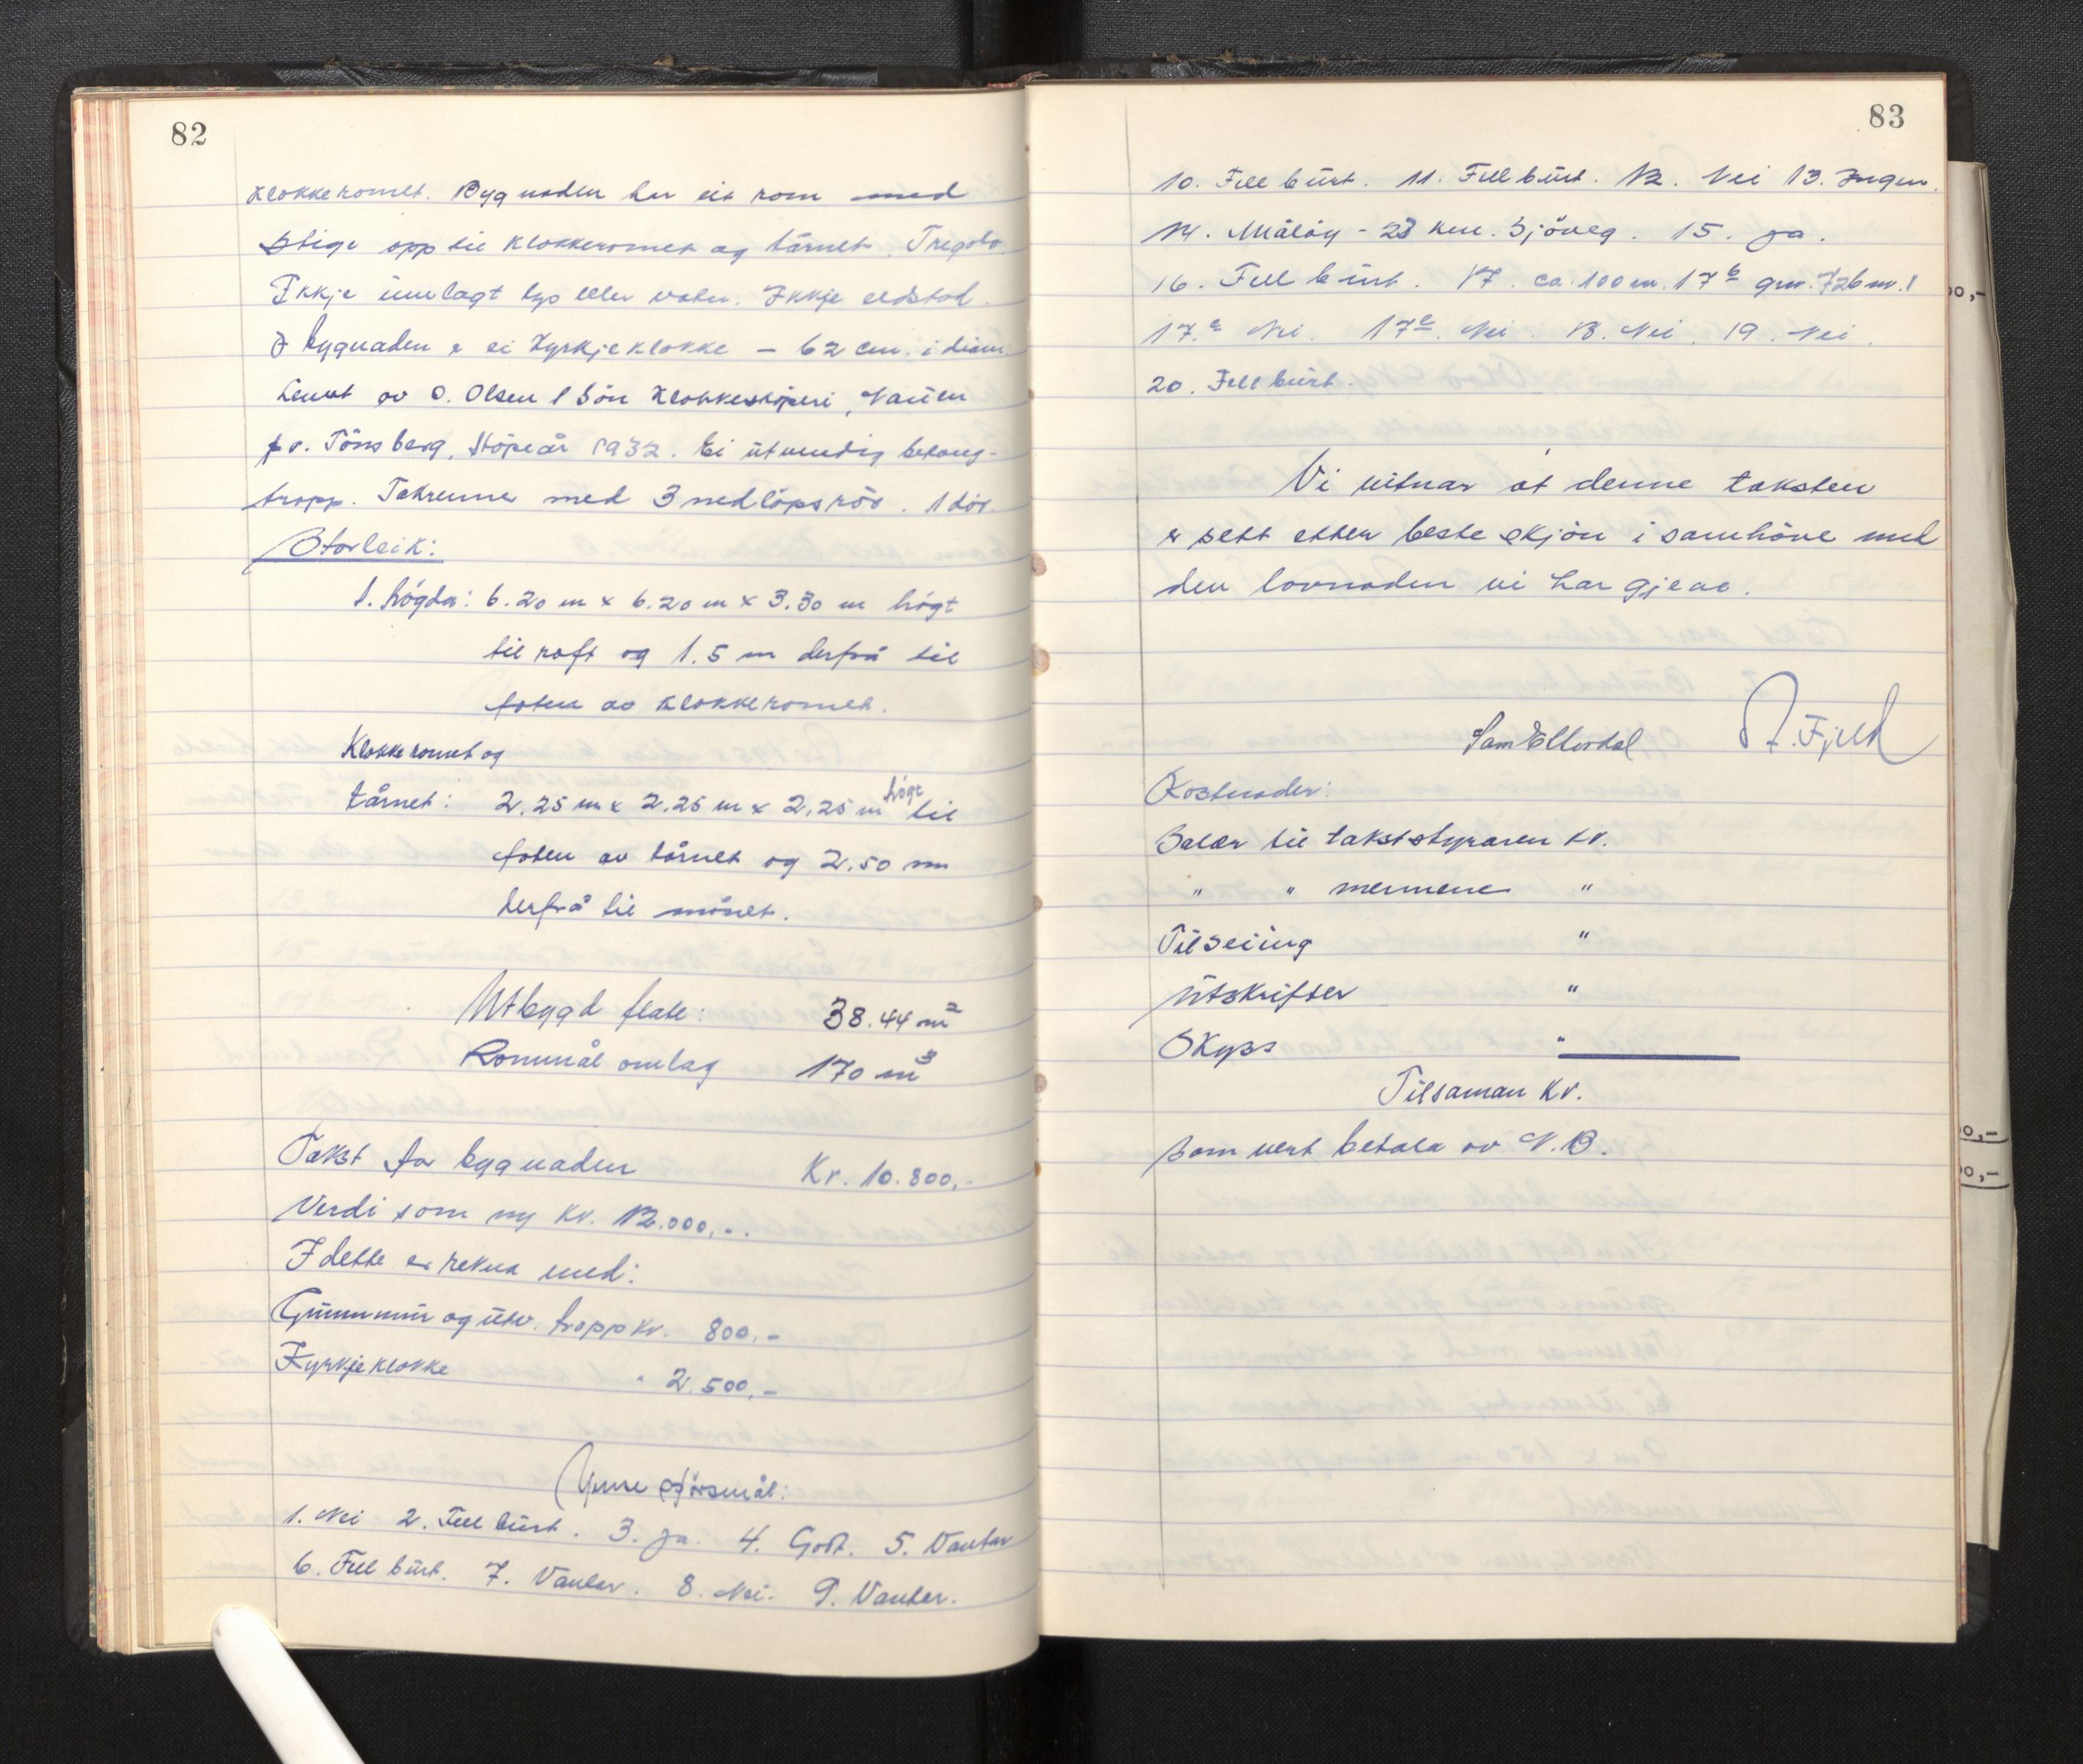 82
Klokkeromet. Bygnaden har eit rom med
stige opp til klokkeromet og tårnet. Tregolv.
Ikkje innlagt lys eller vatn. Ikkje eldstad.
I bygnaden er ei kyrkjeklokke - 62 cm. i diam.
levert av O. Olsen & Søn Klokkestøperi, Nauen
pr. Tönsberg, Støpeår 1932. Ei utvendig betong-
tropp. Takrenner med 3 nedlöpsrör. 1 dör.
Storleik:
1. högda: 6.20 m x 6.20 m x 3.30 m högt
til raft og 1.5 m derfrå til
foten av klokkeromet.
Klokkeromet og
tårnet: 2.25 m x 2.25 m x 2.25 m högt til
foten av tårnet og 2.50 m
derfrå til mönet.
Utbygd flate: 38.44 m²
Rommål omlag 170 m³
Takst for bygnaden Kr. 10.800,-
Verdi som ny kr. 12.000,-.
I dette er rekna med:
Grunnmur og utv. tropp kr. 800.-
Kyrkjeklokke " 2.500,-
Ymse spörsmål:
1. Nei 2. Fell burt. 3. Ja. 4. Godt. 5. Vantar
6. Fell burt. 7. Vantar. 8. Nei. 9. Vantar.
83
10. Fell burt. 11. Fell burt. 12. Nei 13. Ingen.
14. Måløy - 23 km. Sjöveg. 15. Ja.
16. Fell burt. 17. ca. 100 m. 17 b 726
17. a Nei. 17 c. Nei. 18. Nei. 19. Nei.
20. Fell burt.
Vi vitnar at denne taksten
er sett etter beste skjön i samhöve med
den lovnaden vi har gjeve.
Sam Ellerdal A. Fjell
Kostnader:
Salær til takststyraren kr.
" " mennene "
Tilseiing "
Utskrifter "
Skyss "
Tilsaman Kr.
som vert betala av N.B.